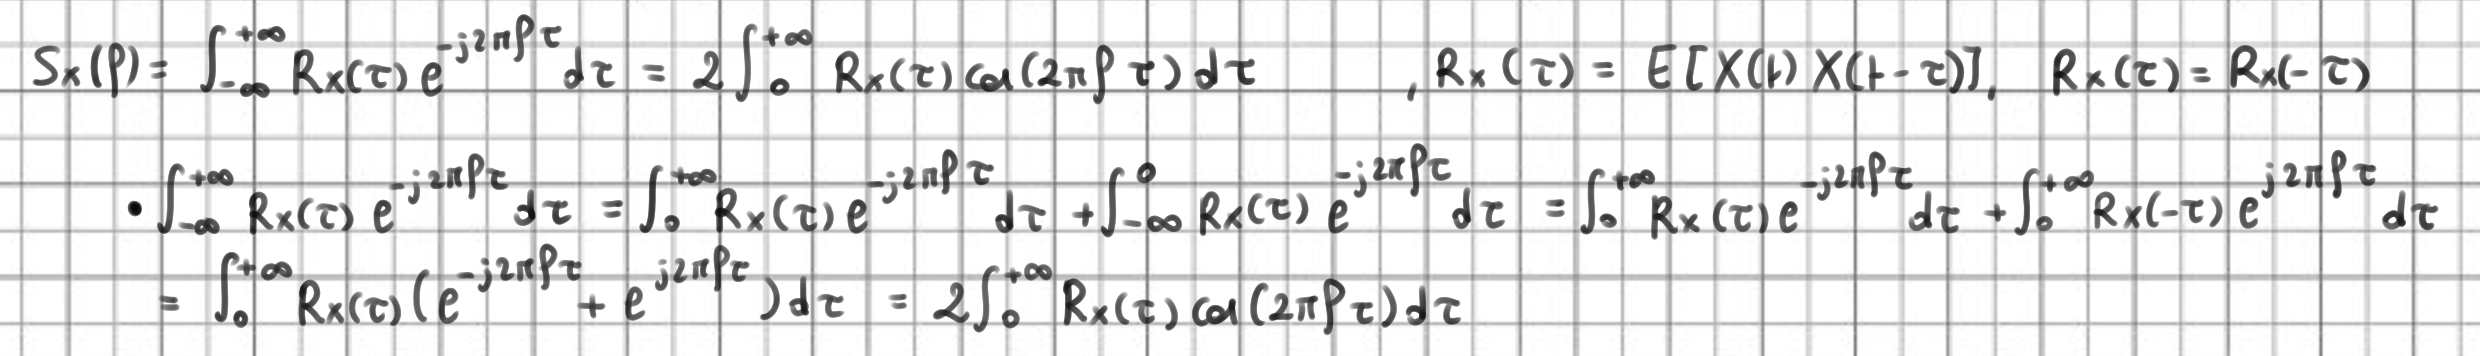 Sx(f) = ∫_{-∞}^{+∞} Rx(τ) e^{-j2πfτ} dτ = 2∫_{0}^{+∞} Rx(τ) cos(2πfτ) dτ , Rx(τ) = E[X(t) X(t-τ)], Rx(τ) = Rx(-τ)
• ∫_{-∞}^{+∞} Rx(τ) e^{-j2πfτ} dτ = ∫_{0}^{+∞} Rx(τ) e^{-j2πfτ} dτ + ∫_{-∞}^{0} Rx(τ) e^{-j2πfτ} dτ = ∫_{0}^{+∞} Rx(τ) e^{-j2πfτ} dτ + ∫_{0}^{+∞} Rx(-τ) e^{j2πfτ} dτ
= ∫_{0}^{+∞} Rx(τ) (e^{-j2πfτ} + e^{j2πfτ}) dτ = 2∫_{0}^{+∞} Rx(τ) cos(2πfτ) dτ